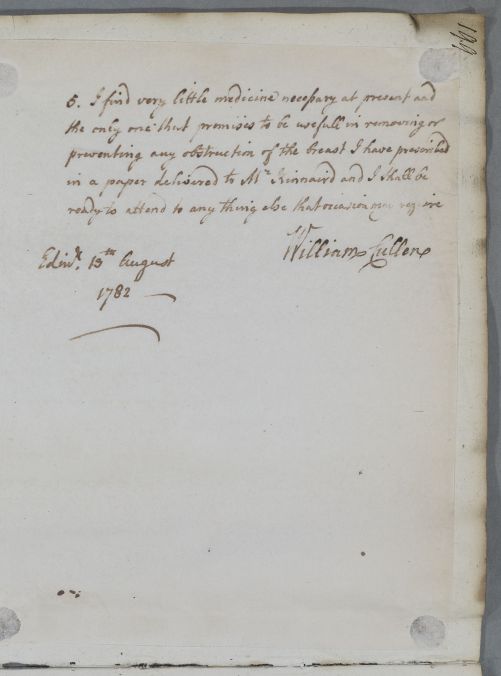 199
5. I find very little medicine necessary at present and
the only one that promises to be usefull in removing or
preventing any obstruction of the breast I have prescribed
in a paper delivered to Mr Kinnaird and I shall be
ready to attend to any thing else that occasion may require
William Cullen
Edinr. 13th August
1782